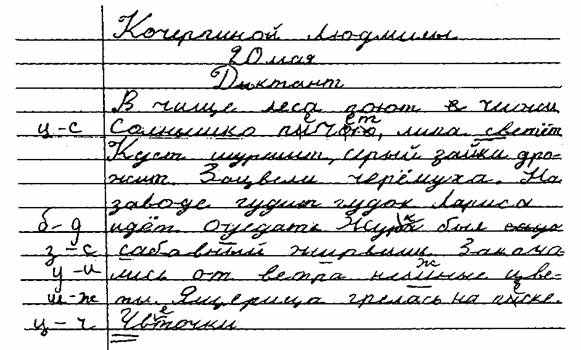 Кочергиной Людмилы
20 мая
Диктант
В чище леса поют чижи
ц-с Солнышко печёт, липа светёт
Куст шуршит, серый зайки дро-
жит. Зацвели черёмуха. На
заводе гудит гудок Лариса
б-д идёт одедать Жук был
з-с сабавный жирвими Закача-
у-и лись от ветра нежные цве-
ш-ж ты. Ящерица грелась на песке.
ц-ч Цветочки